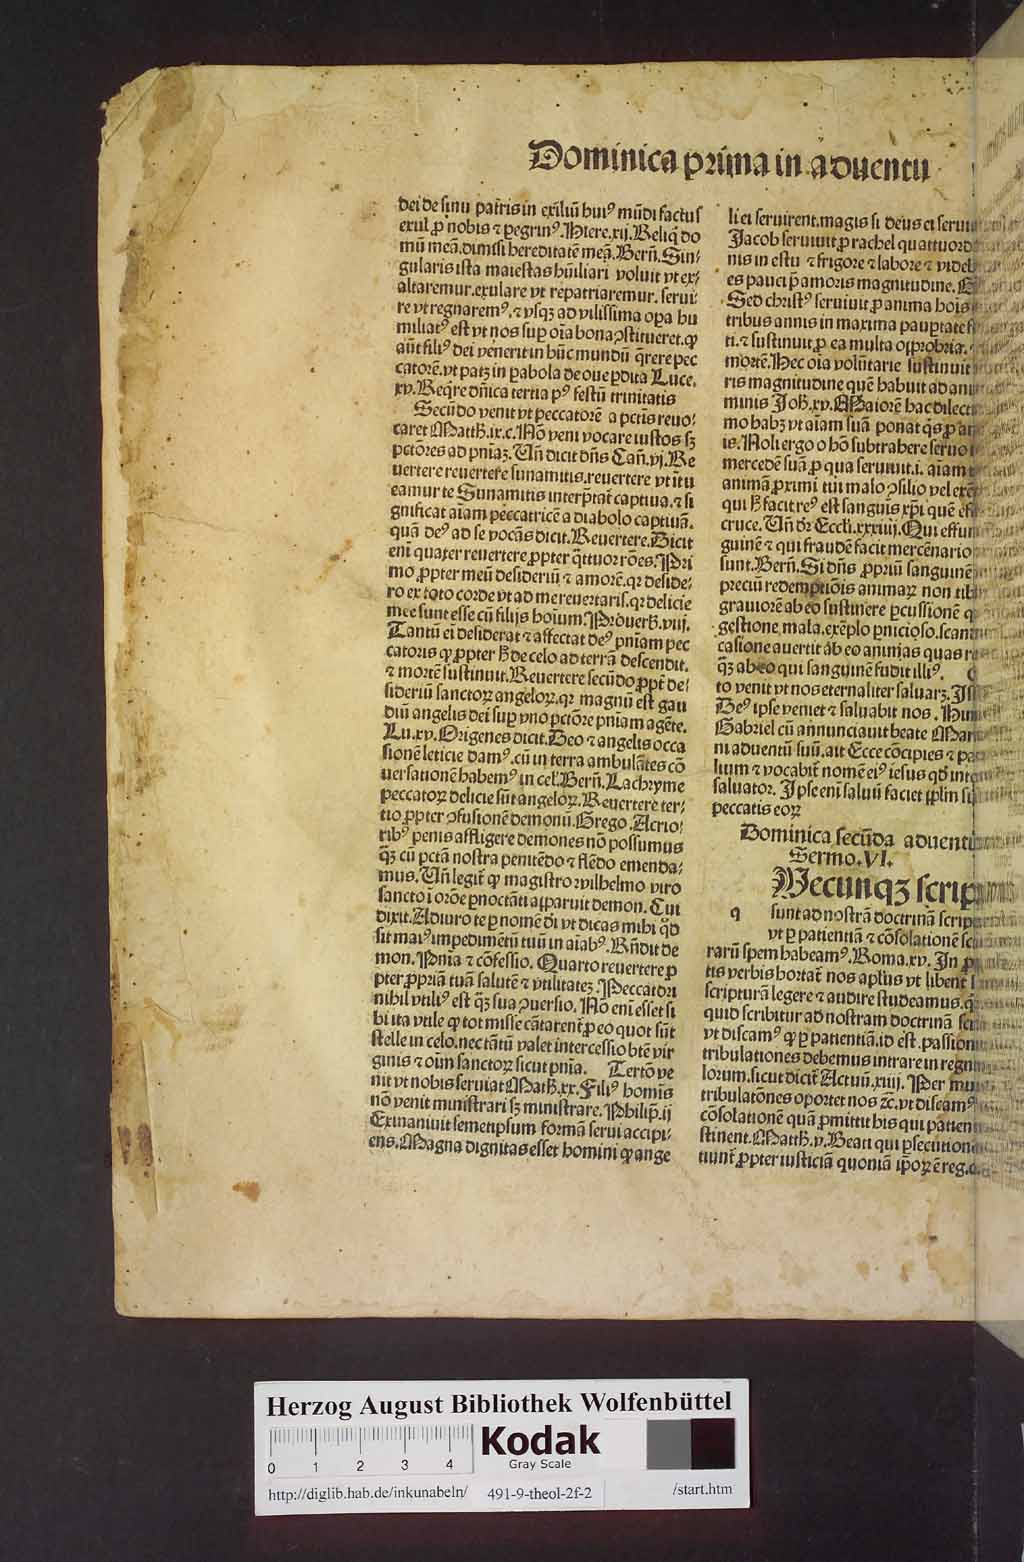 Dominica prima in aduentu
dei de sinu patris in exiliū huiꝰ mūdi factus
exul ꝓ nobis ⁊ ꝑegrinꝰ. Hiere.xij. Reliq̄ do
mū meā. dimisi hereditatē meā. Berñ. Sin⸗
gularis ista maiestas hūiliari voluit vt ex⸗
altaremur. exulare vt repatriaremur. serui⸗
re vt regnaremꝰ. ⁊ vsqꝫ ad vilissima oꝑa hu
miliatꝰ est vt nos suꝑ oīa bona ꝯstitueret. ꝙ
aūt filiꝰ dei venerit in hūc mundū q̄rere pec
catorē. vt patꝫ in ꝑabola de oue ꝑdita Luce.
xv. Req̄re dn̄ica tertia pꝰ festū trinitatis
Secūdo venit vt peccatorē a pctīs reuo⸗
caret Matth.ix.c. Nō veni vocare iustos sꝫ
pctōres ad pn̄iaꝫ. Un̄ dicit dn̄s Can̄.vj. Re
uertere reuertere sunamitis. reuertere vt ītu
eamur te Sunamitis interp̄tat̄ captiua. ⁊ si
gnificat aīam peccatricē a diabolo captiuā.
quā deꝰ ad se vocās dicit. Reuertere. Dicit
eni quater reuertere ꝓpter q̄ttuor rōes. Pri
mo ꝓpter meū desideriū ⁊ amorē. qꝛ deside⸗
ro ex toto corde vt ad me reuertaris. qꝛ delicie
mee sunt esse cū filijs hoīum. Prouerb̄.viij.
Tantū ei desiderat ⁊ affectat deꝰ pn̄iam pec
catoris ꝙ ꝓpter h̄ de celo ad terrā descendit.
⁊ mortē sustinuit. Reuertere secūdo ꝓpt̄ de⸗
sideriū sanctoꝝ angeloꝝ. qꝛ magnū est gau
diū angelis dei suꝑ vno pctōre pn̄iam agēte.
Lu.xv. Origenes dicit. Deo ⁊ angelis occa
sionē leticie damꝰ. cū in terra ambulātes cō
uersationē habemꝰ in cel̄. Berñ. Lachryme
peccatoꝝ delicie sūt angeloꝝ. Reuertere ter⸗
tio ꝓpter ꝯfusionē demonū. Grego. Acrio⸗
ribꝰ penis affligere demones nō possumus
q̄ꝫ cū pctā nostra penitēdo ⁊ flēdo emenda⸗
mus. Un̄ legit̄ ꝙ magistro wilhelmo viro
sancto ī orōe ꝑnoctāti apparuit demon. Cui
dixit. Adiuro te ꝑ nomē dī vt dicas mihi qd̄
sit maiꝰ impedimētū tuū in aīabꝰ. Rn̄dit de
mon. Pn̄ia ⁊ cōfessio. Quarto reuertere ꝓ
pter ꝓpriā tuā salutē ⁊ vtilitateꝫ. Peccatori
nihil vtiliꝰ est q̄ꝫ sua ꝯuersio. Nō eni esset si
bi ita vtile ꝙ tot misse cātarent̄ ꝓ eo quot sūt
stelle in celo. nec tātū valet intercessio btē vir
ginis ⁊ oīm sanctoꝝ sicut pn̄ia. Tertō ve
nit vt nobis seruiat Math̄.xx. Filiꝰ homis
nō venit ministrari sꝫ ministrare. Philip̄.ij
Exinaniuit semetipsum formā serui accipi⸗
ens. Magna dignitas esset homini ꝙ ange
li ei seruirent. magis si deus ei serui
Jacob seruiuit ꝓ rachel quattuord
nis in estu ⁊ frigore ⁊ labore ⁊ videb
es pauci p̄ amoris magnitudine.
Sed christꝰ seruiuit ꝓ anima hoīs
tribus annis in maxima pauꝑtate
ti. ⁊ sustinuit ꝓ ea multa opprobria.
mortē. Hec oīa volūtarie sustinuit
ris magnitudine quē habuit ad ani
minis Joh̄.xv. Maiorē hac dilecti
mo habꝫ vt aīam suā ponat q̄s ꝓ
is. Noli ergo o hō subtrahere seruo
mercedē suā ꝓ qua seruiuit.i. aīam
animā ꝓximi tui malo ꝯsilio vel exē
qui h̄ facit reꝰ est sanguīs xp̄i quē eff
cruce. Un̄ dr̄ Eccli.xxxiiij. Qui effun
guinē ⁊ qui fraudē facit mercēnario
sunt. Berñ. Si dn̄s ꝓpriū sanguinē
preciū redemptiōis animaꝝ non tibi
grauiorē ab eo sustinere ꝑcussionē
gestione mala. exēplo ꝑnicioso. scan
casione auertit ab eo animas quas
q̄ꝫ ab eo qui sanguinē fudit illiꝰ.
to venit vt nos eternaliter saluarꝫ.
Deꝰ ipse veniet ⁊ saluabit nos.
Gabriel cū annunciauit beate Mar
ni aduentū suū. ait Ecce cōcipies ⁊
lium ⁊ vocabit̄ nomē eiꝰ iesus qd̄
saluator. Ipse eni saluū faciet
peccatis eoꝝ
Dominica secūda aduentu
Sermo.VI.
Wecunqꝫ scrip
q sunt ad nostrā doctrinā scrip
vt ꝑ patientiā ⁊ cōsolationē
rarū spem habeamꝰ. Roma.xv. In
tis verbis hortat̄ nos apl̄us vt libent̄
scripturā legere ⁊ audire studeamus.
quid scribitur ad nostram doctrinā
vt discamꝰ ꝙ ꝑ patientiā. id est. passion
tribulationes debemus intrare in regn
lorum. sicut dicit̄ Actuū.xiiij. Per
tribulatōnes oportet nos ⁊c. vt discamꝰ
cōsolationē quā ꝓmittit his qui patien
stinent. Matth̄.v. Beati qui ꝑsecution
tiunt̄ ꝓpter iusticiā quoniā ip̄oꝝ ē reg.
Herzog August Bibliothek Wolfenbüttel
0 1 2 3 4
Kodak
Gray Scale
http://diglib.hab.de/inkunabeln/ 491-9-theol-2f-2 /start.htm